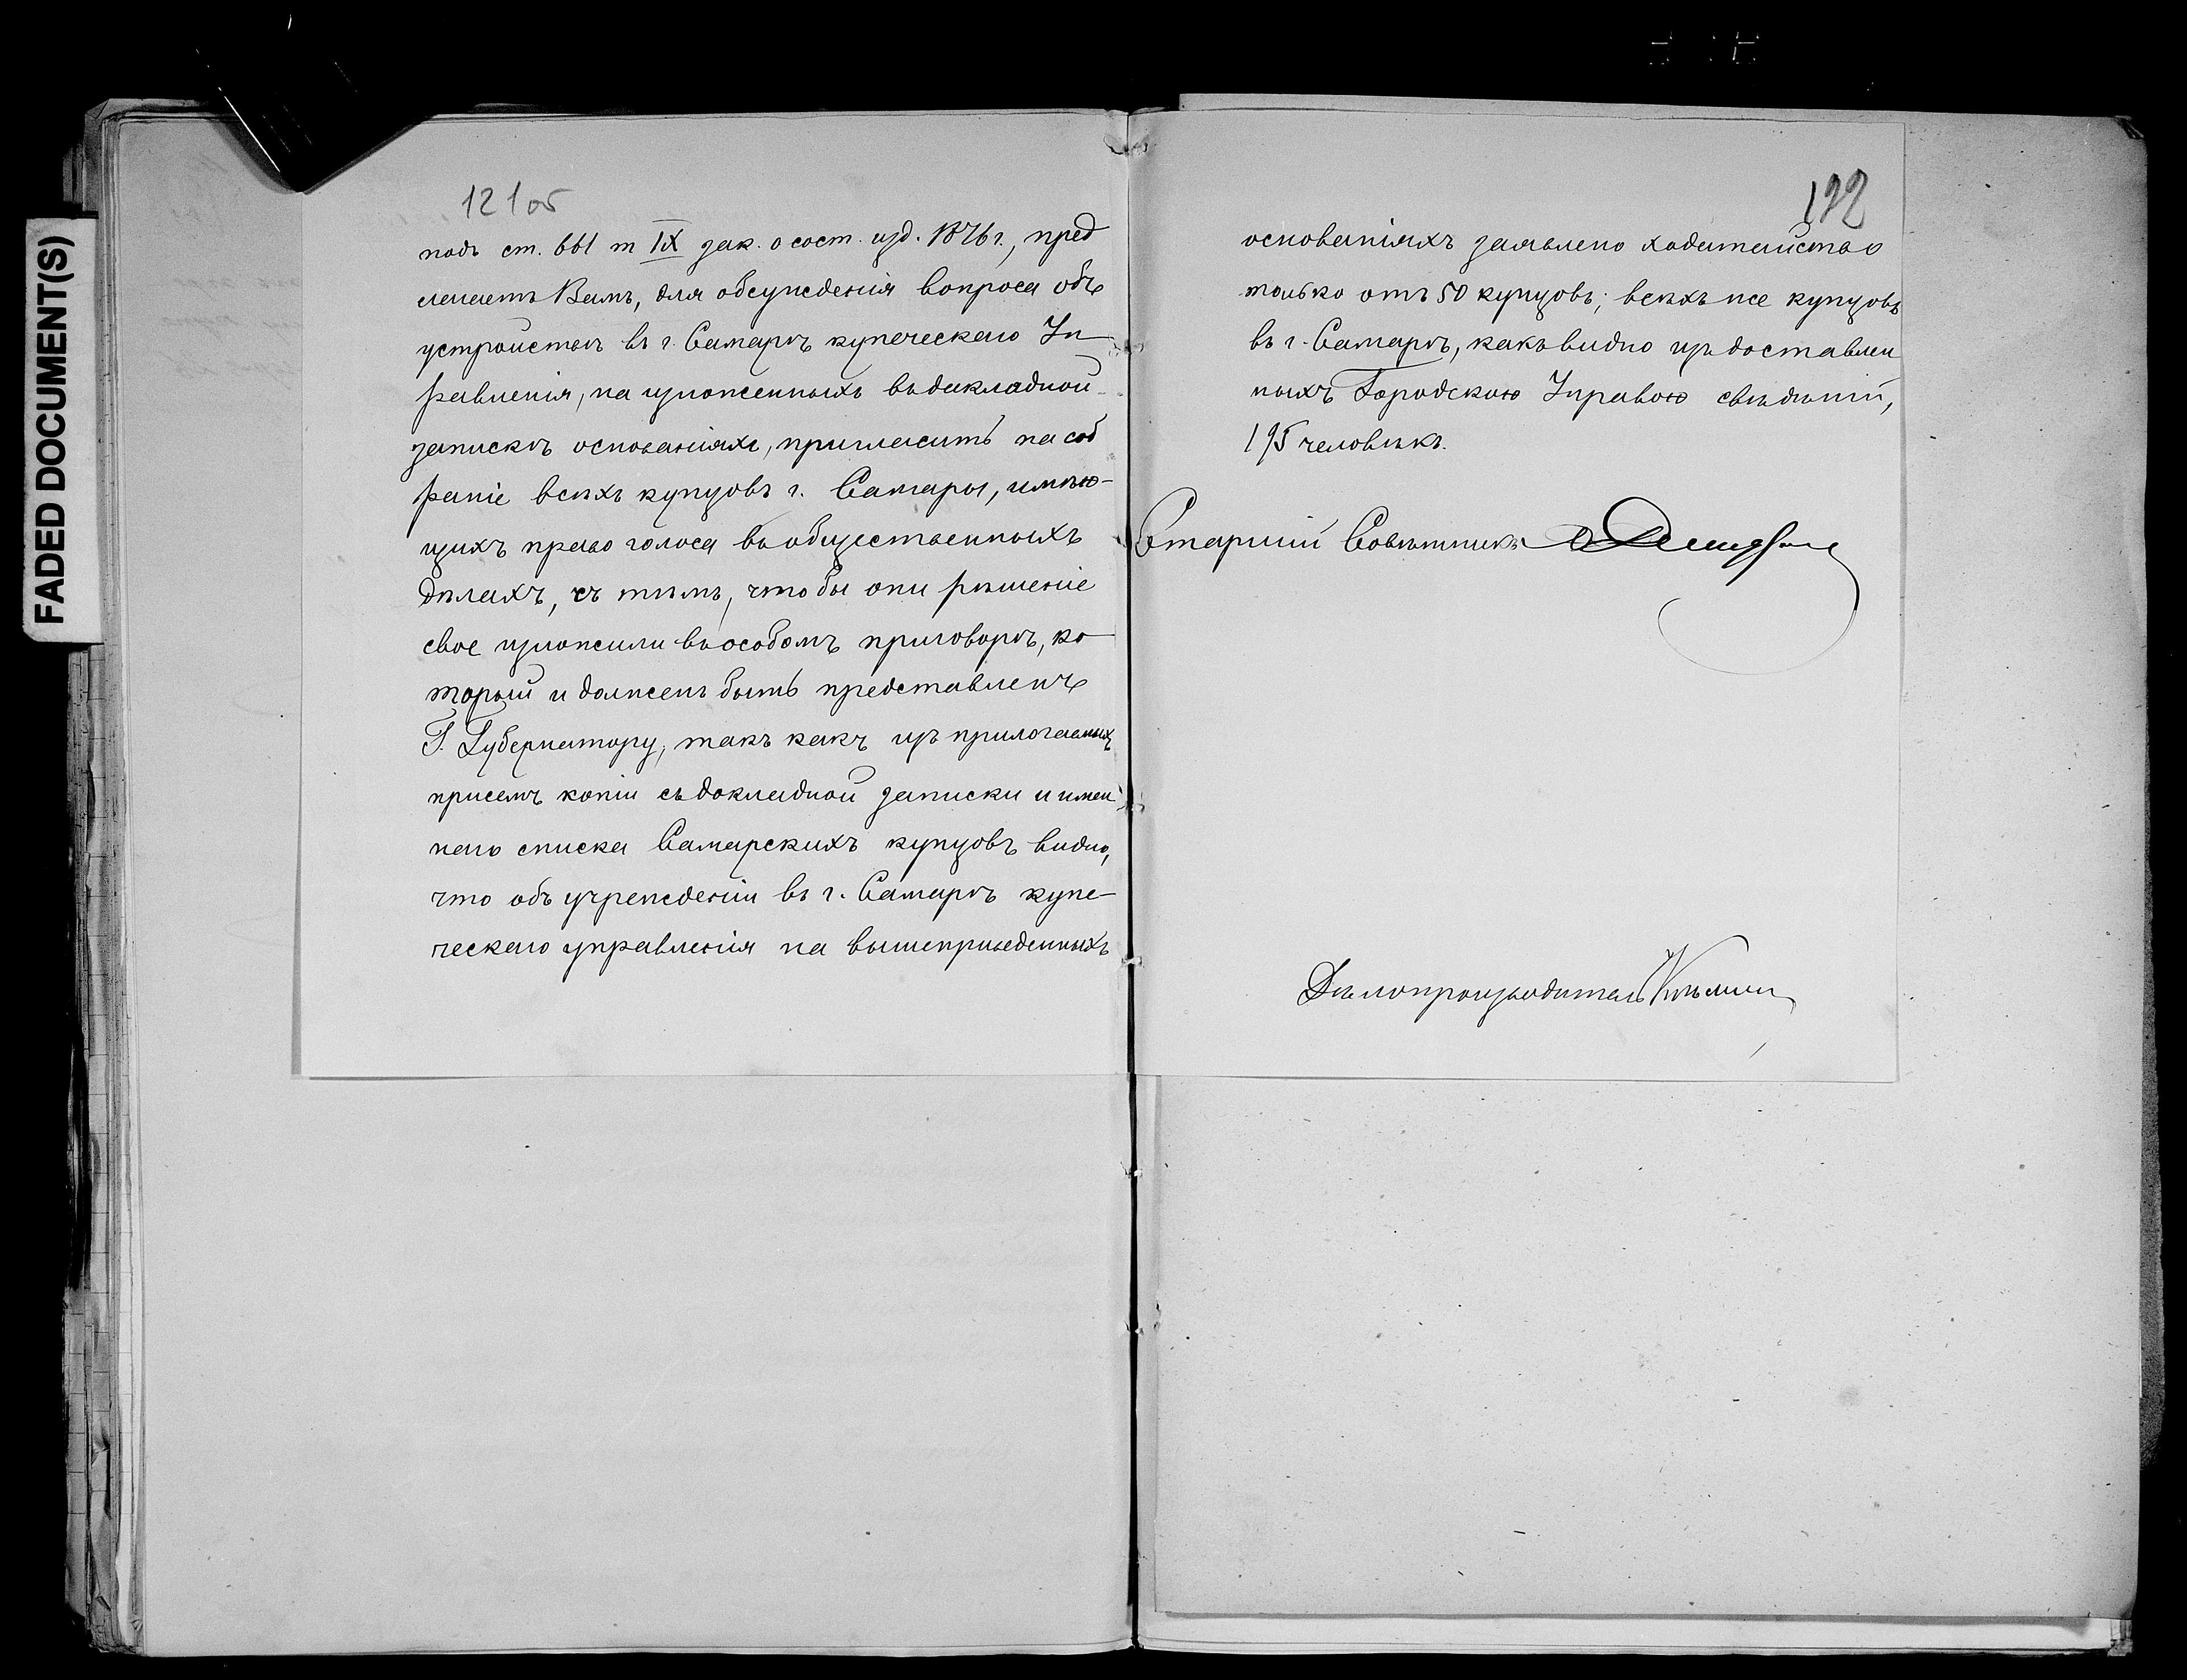 FADED DOCUMENT(S)
121об
подъ ст. 661 т IX зак. о сост. изд. 1876 г., пред
лагаетъ Вамъ, для обсужденія вопроса объ
устройствѣ въ г. Самарѣ купеческаго Уп
равленія, на изложенныхъ въ докладной
запискѣ основаніяхъ, пригласить на соб
раніе всѣхъ купцовъ г. Самары, имѣю-
щихъ право голоса въ общественныхъ
дѣлахъ, съ тѣмъ, чтобы они рѣшеніе
свое изложили въ особомъ приговорѣ, ко
торый и долженъ быть представленъ
Г. Губернатору; такъ какъ изъ прилогаемыхъ
присемъ копіи съ докладной записки и имен
наго списка Самарскихъ купцовъ видно,
что объ учрежденіи въ г. Самарѣ купе-
ческаго управленія на вышеприведенныхъ
122
основаніяхъ заявлено ходатайство
только отъ 50 купцовъ; всѣхъ же купцовъ
въ г. Самарѣ, какъ видно изъ доставлен
ныхъ Городскою Управою свѣдѣній,
195 человѣкъ.
Старшій Совѣтникъ
Дѣлопроизводитель